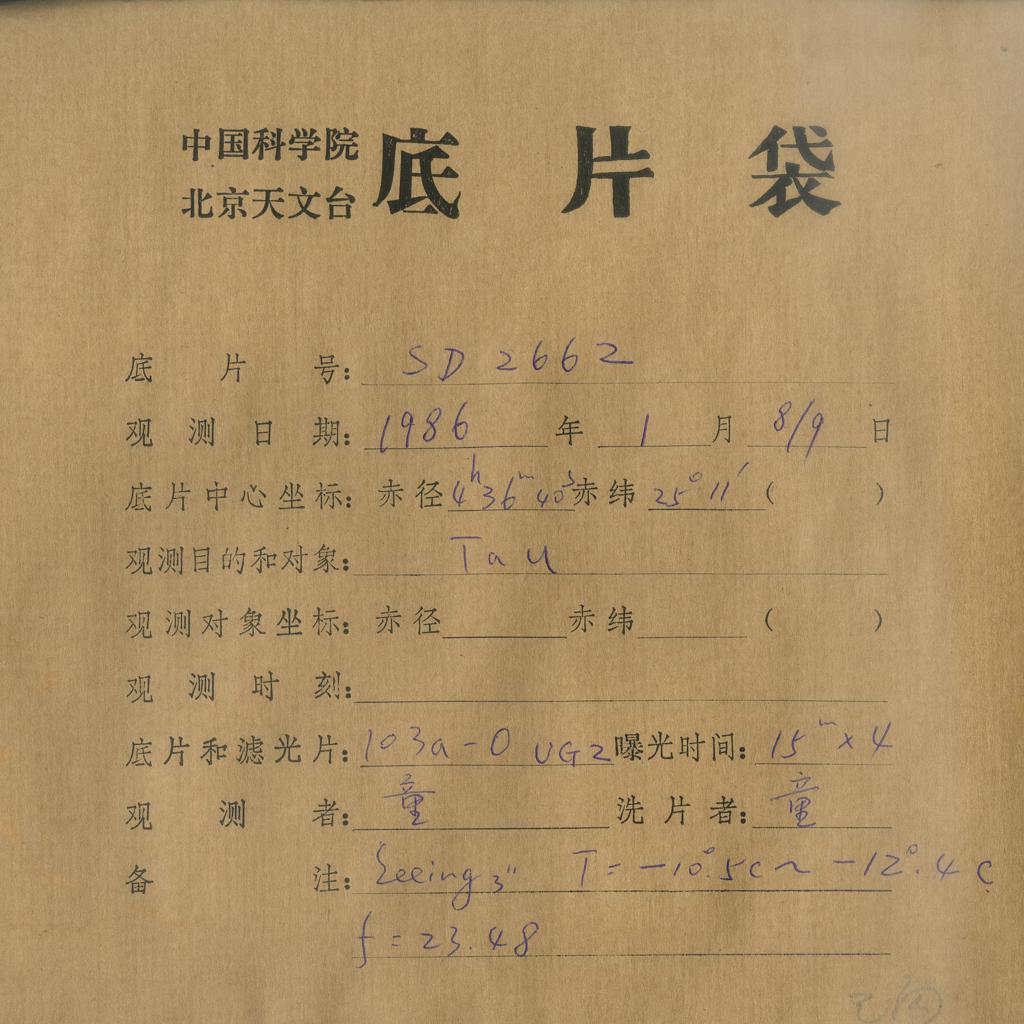 中国科学院
北京天文台
底片袋
底片号: SD 2662
观测日期: 1986 年 1 月 8/9 日
底片中心坐标: 赤径 4h36m40s 赤纬 25°11′ ( )
观测目的和对象: Tau
观测对象坐标: 赤径 赤纬 ( )
观测时刻:
底片和滤光片: 103a-O UG2 曝光时间: 15m×4
观测者: 童 洗片者: 童
备注: Seeing 3" T=-10°.5C~-12°.4C
f=23.48